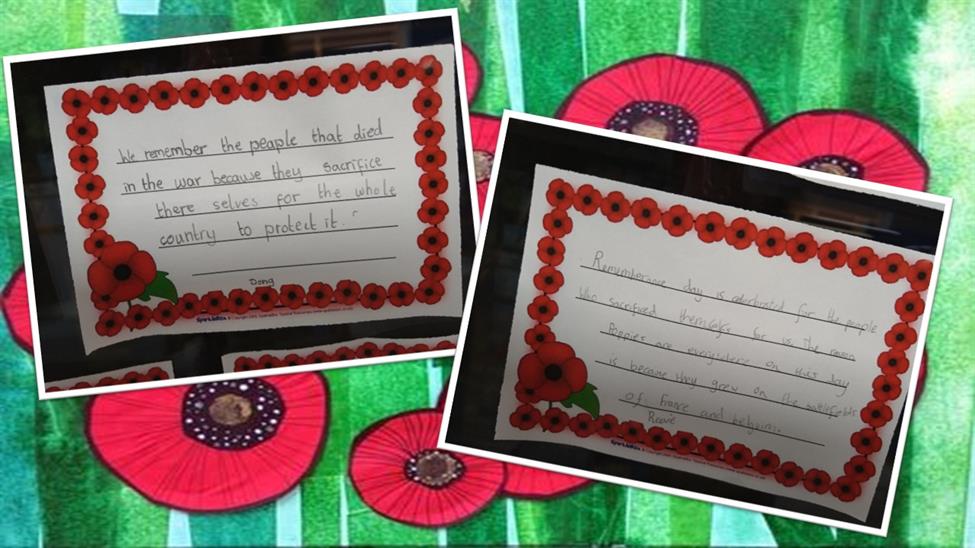 We remember the peaple that died
in the war because they sacrifice
there selves for the whole
country to protect it.
Dong
SparkleBox
Rememberance day is celebrated for the people
who sacrificed for us. The reason
Poppies are everywhere on this day
is because they grew on the battlefields
of france and belguim.